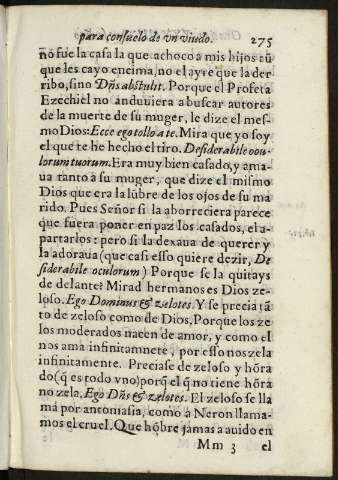 para consuelo de vn viudo. 275
no fue la casa la que achoco a mis hijos cũ
que les cayo encima, no el ayre que la der
ribo, sino Dñs abstulit. Porque el Profeta
Ezechiel no anduuiera a buscar autores
de la muerte de su muger, le dize el mes-
mo Dios: Ecce ego tollo a te. Mira que yo soy
el que te he hecho el tiro. Desiderabile ocu-
lorum tuorum. Era muy bien casado, y ama-
ua tanto a su muger, que dize el mismo
Dios que era la lũbre de los ojos de su ma
rido. Pues Señor si la aborreciera parece
que fuera poner en paz los casados, el a-
partarlos: pero si la dexaua de querer y
la adoraua (que casi esso quiere dezir, De
siderabile oculorum) Porque se la quitays
de delante? Mirad hermanos es Dios ze-
loso. Ego Dominus & zelotes. Y se precia tã
to de zeloso como de Dios, Porque los ze
los moderados nacen de amor, y como el
nos ama infinitamnete, por esso nos zela
infinitamente. Preciase de zeloso y hõra
do (q̃ es todo vno) porq̃ el q̃ no tiene hõra
no zela, Ego Dñs & zelotes. El zeloso se lla
ma por antomasia, como a Neron llama-
mos el cruel. Que hõbre jamas a auido en
Mm 3 el